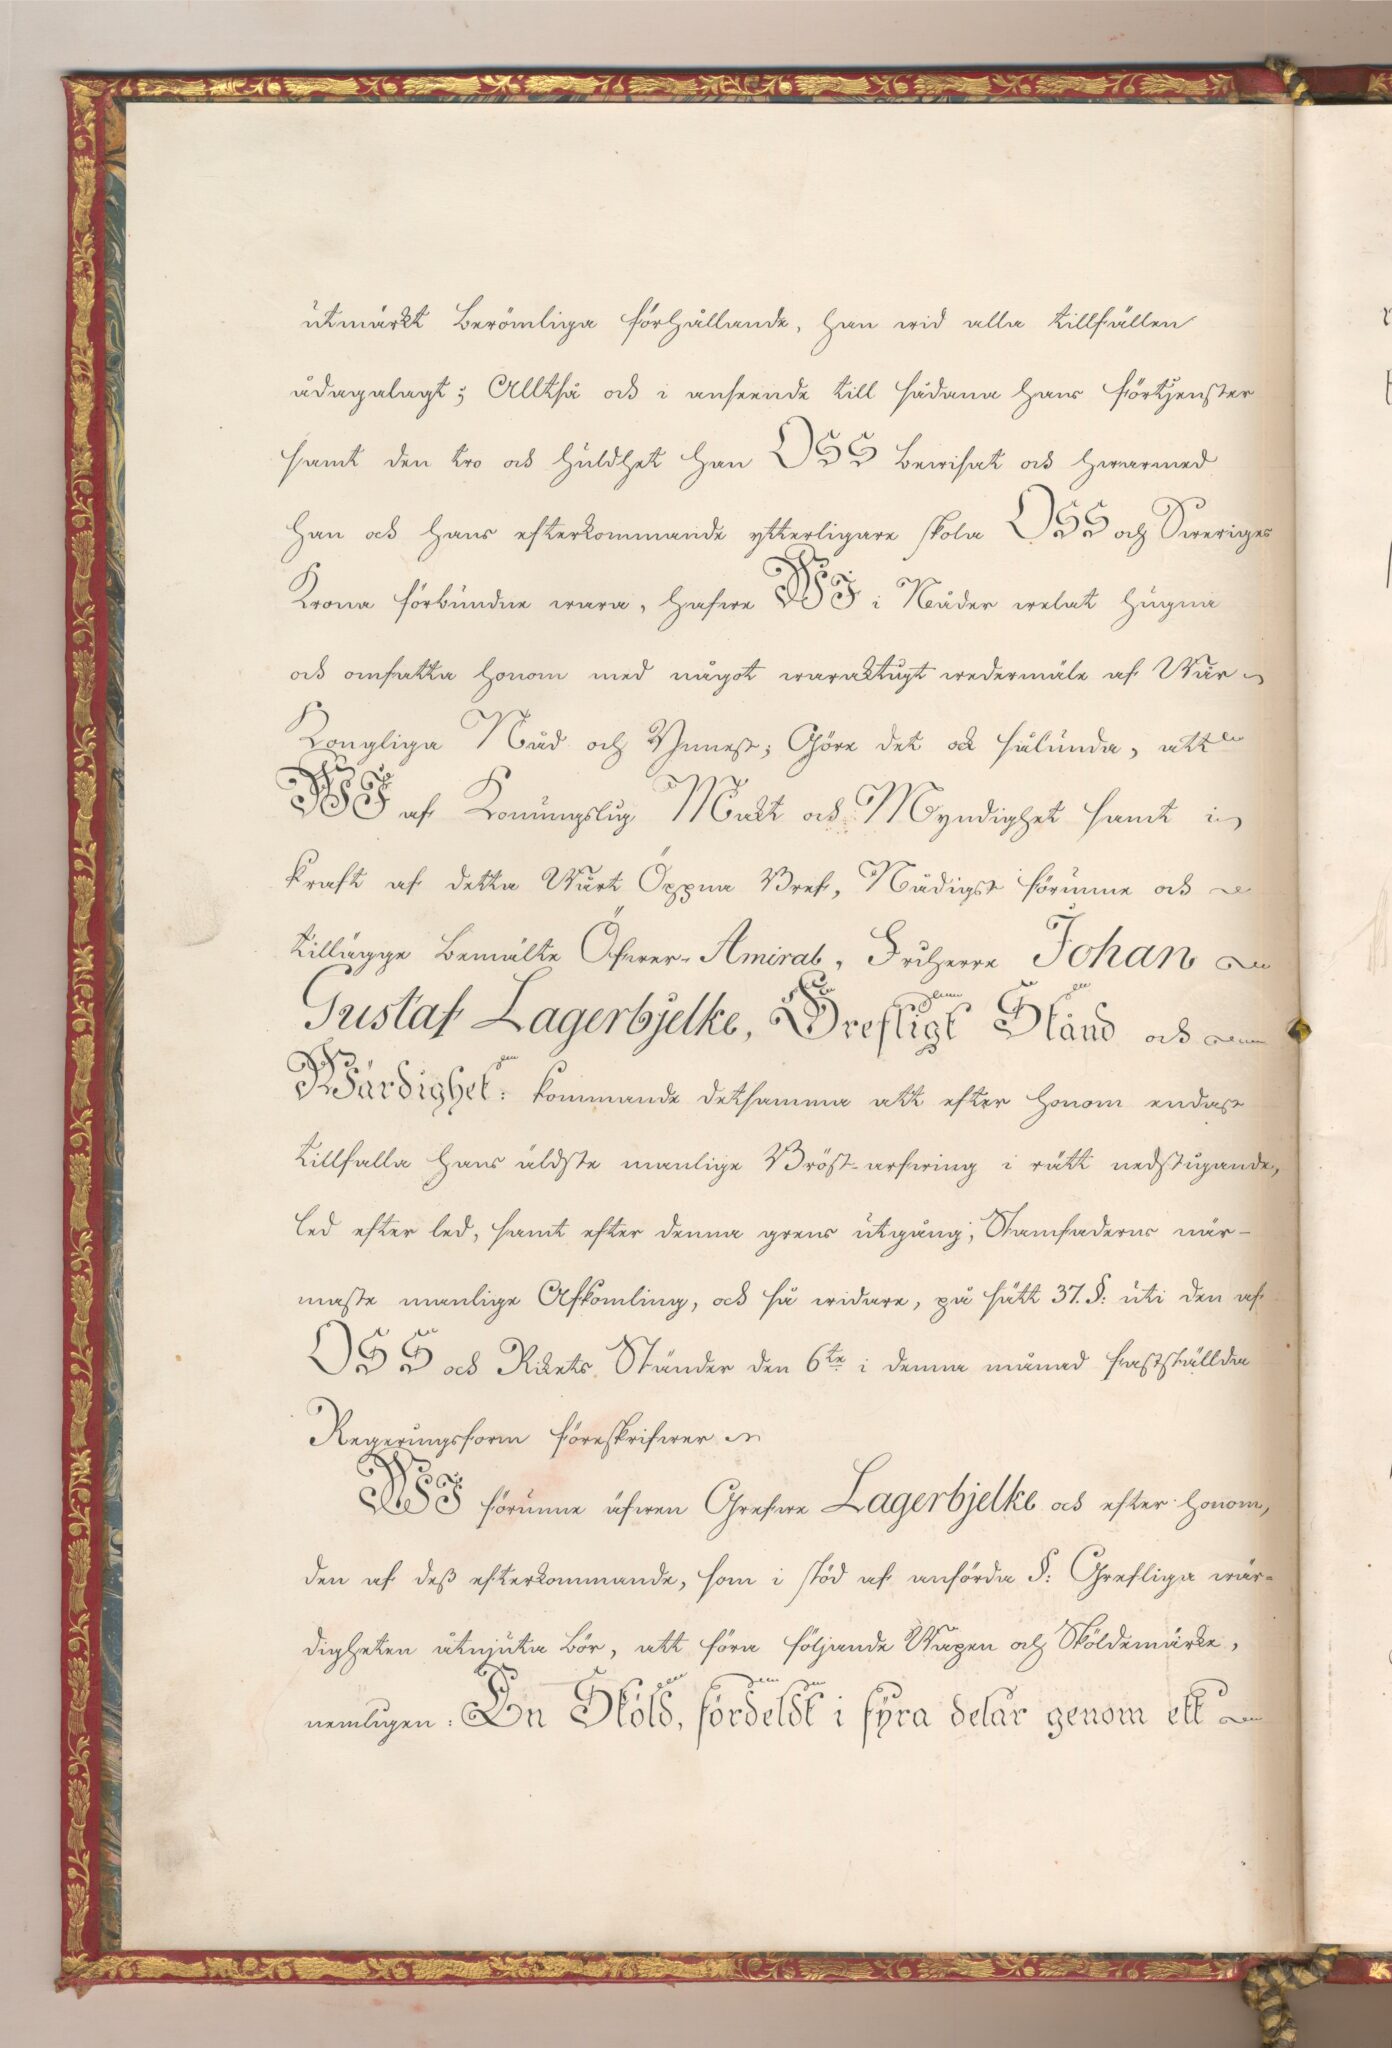 utmärkt berömliga förhållande, han wid alla tillfällen
ådagalagt; Alltså och i anseende till sådana hans förtjenster
samt den tro och huldhet han OSS bewisat och hwarmed
han och hans efterkommande ytterligare skola OSS och Sweriges
Krona förbundne wara, hafwe WJ i Nåder welat hugna
och omfatta honom med något waraktigt wedermäle af Wår
Kongliga Nåd och Ynnest; Göre det ock sålunda, att
WJ af Konungslig Makt och Myndighet samt i
kraft af detta Wårt Öppna Bref, Nådigst förunne och
tillägge bemälte Öfwer-Amiral, Friherre Johan
Gustaf Lagerbjelke, Grefligt Stånd och
Wärdighet: kommande detsamma att efter honom endast
tillfalla hans äldste manlige Bröst-arfwing i rätt nedstigande,
led efter led, samt efter denna grens utgång, Stamfaderns när-
maste manlige Afkomling, och så widare, på sätt 37. §: uti den af
OSS och Rikets Ständer den 6te i denna månad fastställda
Regeringsform föreskrifwer
WJ förunne äfwen Grefwe Lagerbjelke och efter honom,
den af deß efterkommande, som i stöd af anförda §: Grefliga wär-
digheten åtnjuta bör, att föra följande Wapen och Sköldemärke,
nemligen: En Sköld, fördeldt i fyra delar genom ett